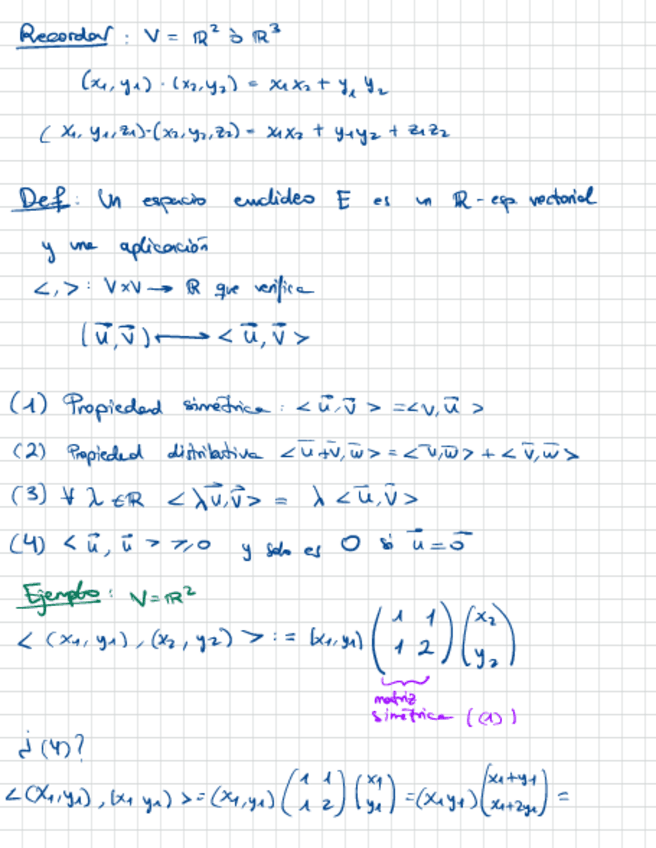 Recordar : V = ℝ² ò ℝ³
(x₁, y₁) · (x₂, y₂) = x₁x₂ + y₁ y₂
(x₁, y₁, z₁)·(x₂, y₂, z₂) = x₁x₂ + y₁y₂ + z₁z₂
Def : Un espacio euclideo E es un ℝ-esp vectorial
y una aplicación
<,> : V×V → ℝ que verifica
(u⃗, v⃗) ⟼ < u⃗, v⃗ >
(1) Propiedad simétrica : < u⃗, v⃗ > = < v, u⃗ >
(2) Propiedad distributiva < u̅+v̅, w̅ > = < u̅, w̅ > + < v̅, w̅ >
(3) ∀ λ ∈ ℝ < λu⃗, v⃗ > = λ < u⃗, v⃗ >
(4) < u⃗, u⃗ > ≥ 0 y solo es 0 si u⃗ = 0⃗
Ejemplo : V = ℝ²
< (x₁, y₁), (x₂, y₂) > := (x₁, y₁) (1 1 / 1 2) (x₂ / y₂)
matriz
simétrica ((1))
¿(4)?
< (x₁, y₁), (x₁ y₁) > = (x₁, y₁) (1 1 / 1 2) (x₁ / y₁) = (x₁ y₁) (x₁+y₁ / x₁+2y₁) =